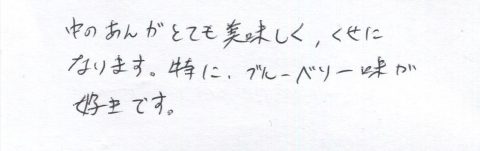 中のあんがとても美味しく，くせに
なります。特に、ブルーベリー味が
好きです。